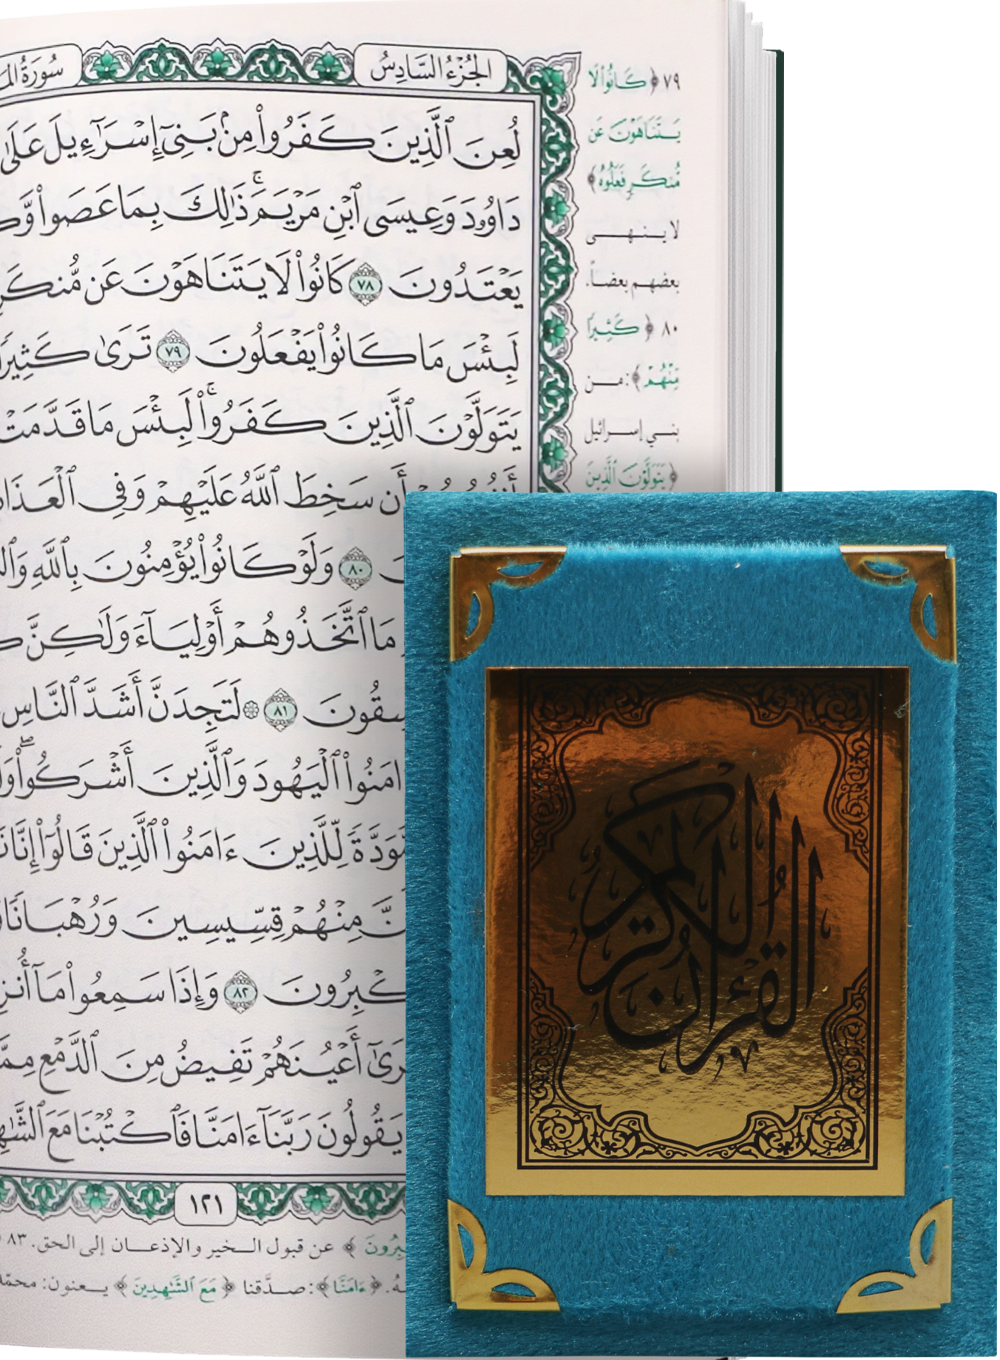 سُورَةُ
الجُزْءُ السَّادِسُ
لُعِنَ ٱلَّذِينَ كَفَرُوا۟ مِنۢ بَنِىٓ إِسْرَٰٓءِيلَ عَلَىٰ
دَاوُۥدَ وَعِيسَى ٱبْنِ مَرْيَمَ ۚ ذَٰلِكَ بِمَا عَصَوا۟
يَعْتَدُونَ ٧٨ كَانُوا۟ لَا يَتَنَاهَوْنَ عَن مُّنكَرٍ
لَبِئْسَ مَا كَانُوا۟ يَفْعَلُونَ ٧٩ تَرَىٰ كَثِيرًا
يَتَوَلَّوْنَ ٱلَّذِينَ كَفَرُوا۟ ۚ لَبِئْسَ مَا قَدَّمَتْ
أَن سَخِطَ ٱللَّهُ عَلَيْهِمْ وَفِى ٱلْعَذَا
٨٠ وَلَوْ كَانُوا۟ يُؤْمِنُونَ بِٱللَّهِ
مَا ٱتَّخَذُوهُمْ أَوْلِيَآءَ وَلَٰكِنَّ
سِقُونَ ٨١ ۞ لَتَجِدَنَّ أَشَدَّ ٱلنَّاسِ
ءَامَنُوا۟ ٱلْيَهُودَ وَٱلَّذِينَ أَشْرَكُوا۟ ۖ
مَّوَدَّةً لِّلَّذِينَ ءَامَنُوا۟ ٱلَّذِينَ قَالُوٓا۟ إِنَّا
مِنْهُمْ قِسِّيسِينَ وَرُهْبَانًا
كْبِرُونَ ٨٢ وَإِذَا سَمِعُوا۟ مَآ أُنزِ
رَىٰٓ أَعْيُنَهُمْ تَفِيضُ مِنَ ٱلدَّمْعِ مِمَّا
يَقُولُونَ رَبَّنَآ ءَامَنَّا فَٱكْتُبْنَا مَعَ ٱلشَّٰهِ
١٢١
٧٩ ﴿كَانُوا۟ لَا
يَتَنَاهَوْنَ عَن
مُّنكَرٍ فَعَلُوهُ﴾
لا ينهى
بعضهم بعضاً.
٨٠ ﴿كَثِيرًا
مِّنْهُمْ﴾: من
بني إسرائيل
﴿يَتَوَلَّوْنَ ٱلَّذِينَ
بِرُونَ﴾ عن قبول الخير والإذعان إلى الحق. ٨٣
﴿ءَامَنَّا﴾: صدَّقنا ﴿مَعَ ٱلشَّٰهِدِينَ﴾ يعنون: محمّد
القرآن الكريم